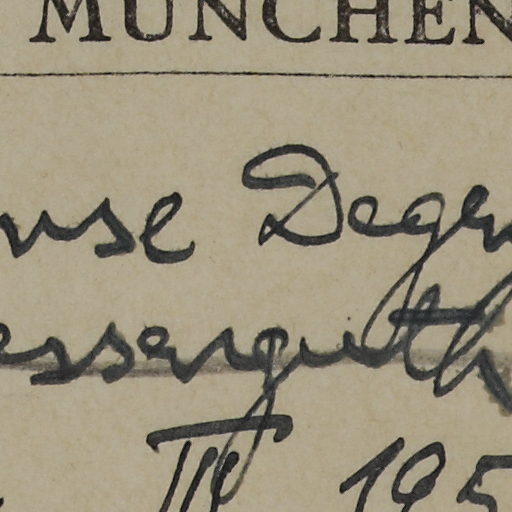 MÜNCHEN
nse Degen
esserguth
III 195